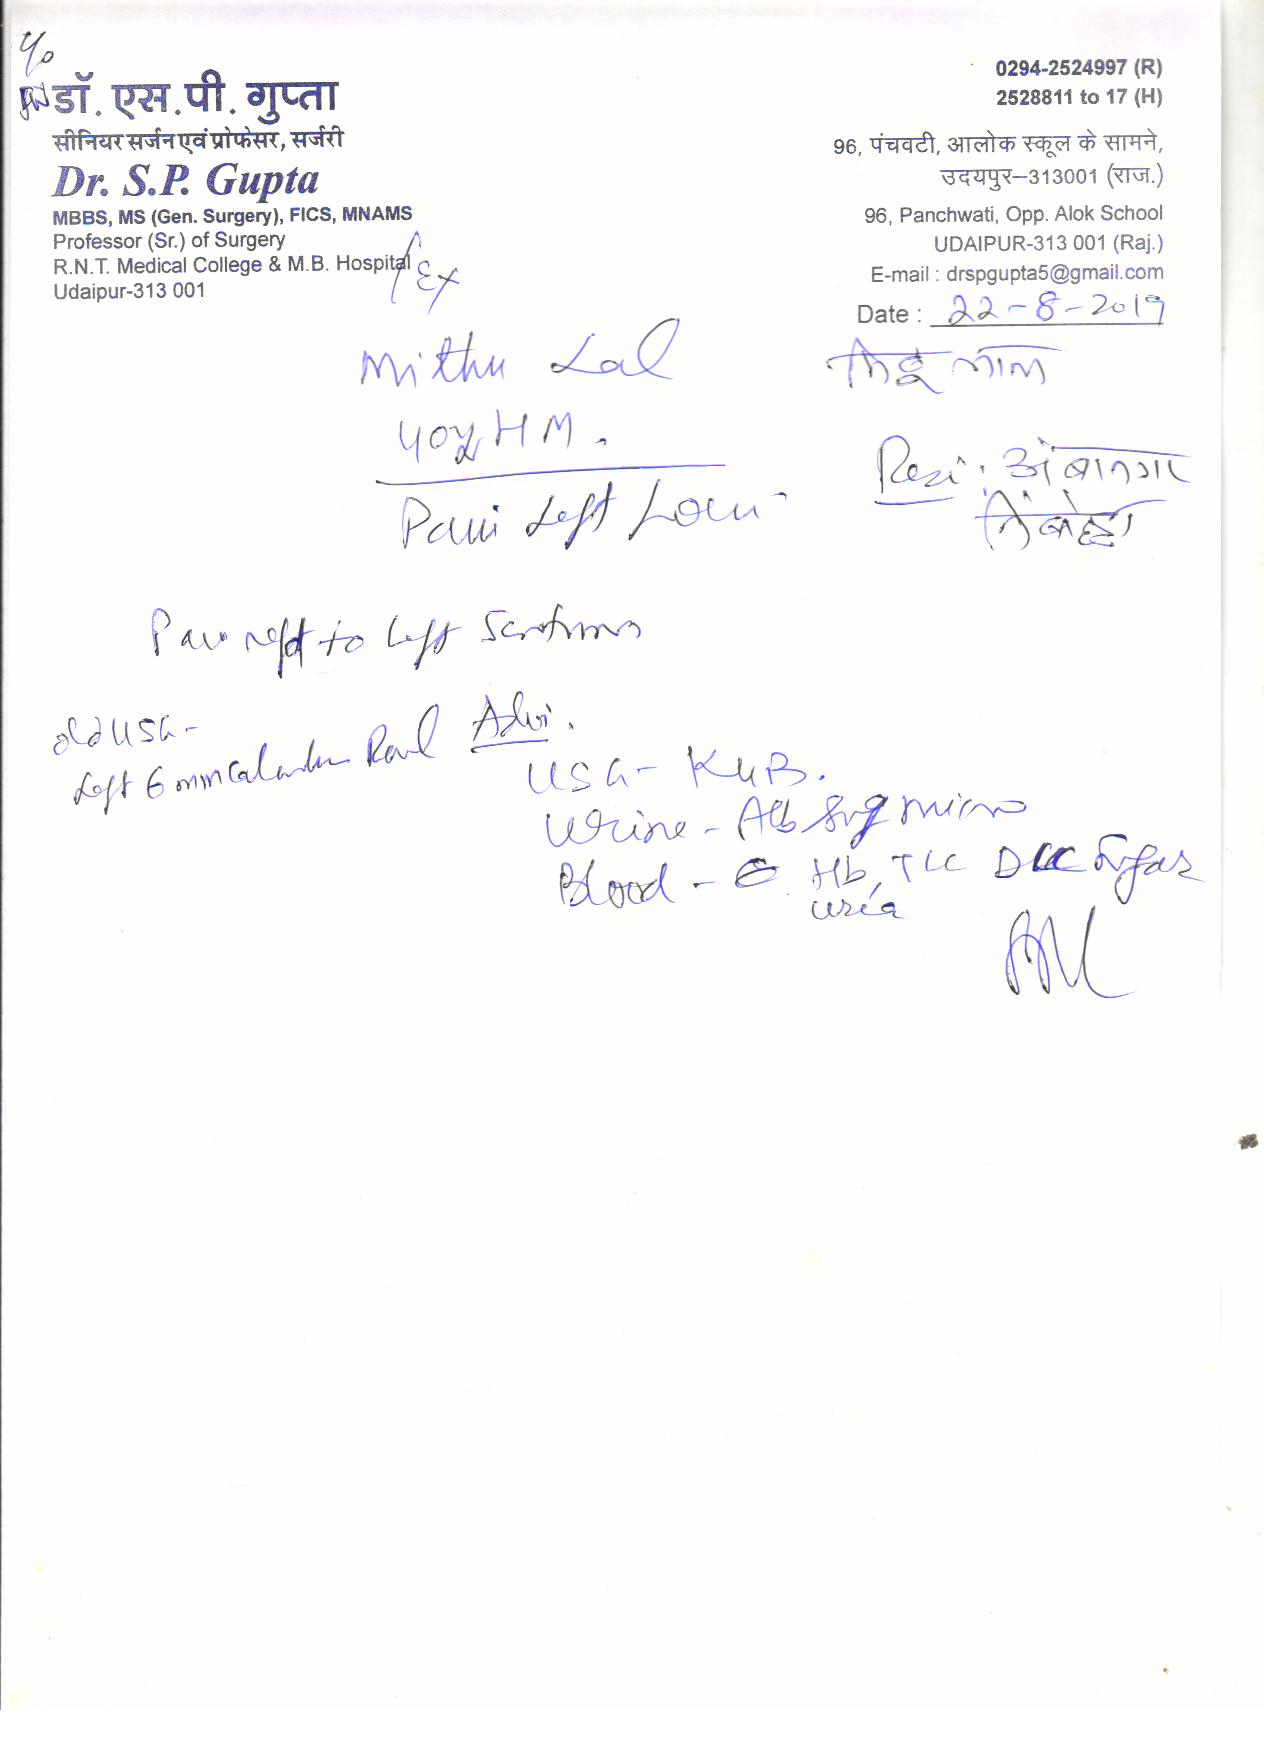 डॉ. एस.पी. गुप्ता
सीनियर सर्जन एवं प्रोफेसर, सर्जरी
Dr. S.P. Gupta
MBBS, MS (Gen. Surgery), FICS, MNAMS
Professor (Sr.) of Surgery
R.N.T. Medical College & M.B. Hospital
Udaipur-313 001
0294-2524997 (R)
2528811 to 17 (H)
96, पंचवटी, आलोक स्कूल के सामने,
उदयपुर–313001 (राज.)
96, Panchwati, Opp. Alok School
UDAIPUR-313 001 (Raj.)
E-mail : drspgupta5@gmail.com
Date : 22-8-2019
Mithu Lal
40y H M.
Resi:
Pain Left Loin
to Left Scrotum
old USG-
Left 6 mm Renal
Advi.
USG- KUB.
Urine - Alb Sug micro
Blood - Hb, TLC DLC Sugar
urea